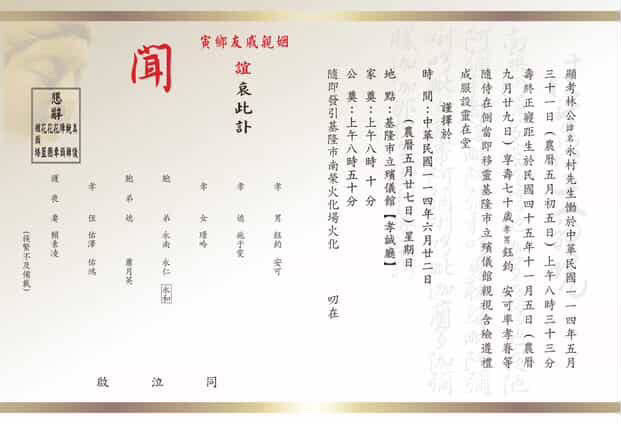 顯考林公諱名永村先生慟於中華民國一一四年五月
三十一日（農曆五月初五日）上午八時三十三分
壽終正寢距生於民國四十五年十一月五日（農曆
九月廿九日）享壽七十歲孝男鈺鈞 安可率孝眷等
隨侍在側當即移靈基隆市立殯儀館親視含殮遵禮
成服設靈在堂
謹擇於
時 間：中華民國一一四年六月廿二日
（農曆五月廿七日）星期日
地 點：基隆市立殯儀館【孝誠廳】
家 奠：上午八時 十分
公 奠：上午八時五十分
隨即發引基隆市南榮火化場火化
叨在
姻親戚友鄉寅
誼哀此訃
聞
孝 男 鈺鈞 安可
孝 媳 施于雯
孝 女 瑾吟
胞 弟 永南 永仁 永和
胞弟媳 蕭月英
孝 侄 佑澤 佑鴻
護 喪 妻 賴素凌
（族繁不及備載）
同 泣 啟
懇辭